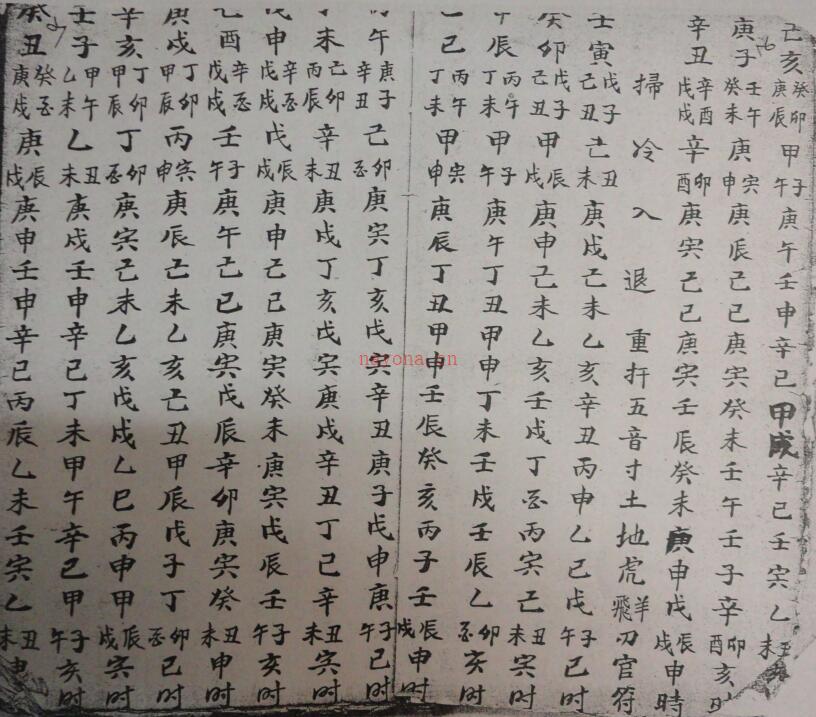 己亥癸卯庚辰甲子午庚午壬申辛巳甲戌辛巳壬寅乙丑未
庚子壬午癸未庚寅申庚辰己巳庚寅癸未壬午壬子辛卯酉亥
辛丑辛酉戊戌辛卯酉庚寅己巳庚寅壬辰癸未庚申戊辰戌申時
掃冷入退重扞五音寸土地虎羊飛刃官符
壬寅戊子己丑己丑未庚戌己未乙亥辛丑丙申乙巳戊子午巳时
癸卯戊子己丑甲辰戌庚申己未乙亥壬戌丁酉丙寅己丑未寅时
辰丙午丁未甲子午庚午丁丑甲申丁未壬戌壬辰乙卯酉亥时
巳丙午丁未甲寅申庚辰丁丑甲申壬辰癸亥丙子壬辰戌申时
午庚子辛丑己卯酉庚寅丁亥戊寅辛丑庚子戊申庚子午巳时
未己卯丙辰辛丑未庚戌丁亥戊寅庚戌辛丑丁巳辛丑未寅时
戊申辛酉戊戌戊辰戌庚申己巳庚寅癸未庚寅戊辰壬子午亥时
己酉辛酉戊戌壬子午庚午己巳庚寅戊辰辛卯庚寅癸丑未申时
庚戌丁卯甲辰丙寅申庚辰己未乙亥己丑甲辰戊子丁卯酉巳时
辛亥丁卯甲辰丁卯酉庚寅己未乙亥戊戌乙巳丙申甲辰戌寅时
壬子甲午乙未乙丑未庚戌壬申辛巳丁未甲午辛巳甲子午亥时
癸丑癸酉庚戌庚辰戌庚申壬申辛巳丙辰乙未壬寅乙丑未申时
narona.cn